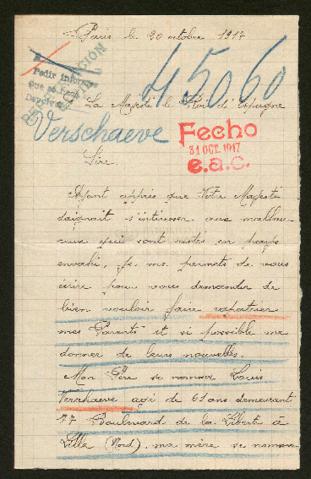 Paris le 20 octobre 1917
Pedir inform
que se hará
45060
A La Majesté le Roi d'Espagne
Verschaeve
Fecho
31 OCT. 1917
e.a.c.
Sire.
Ayant appris que Votre Majesté
daignait s'intéresser aux malheu-
reux qui sont restés en pays
envahi, je me permets de vous
écrire pour vous demander de
bien vouloir faire rapatrier
mes Parents et si possible me
donner de leurs nouvelles.
Mon Père se nomme Louis
Verschaeve agé de 61 ans demeurant
77 Boulevard de la Liberté à
Lille (Nord), ma mère se nomme